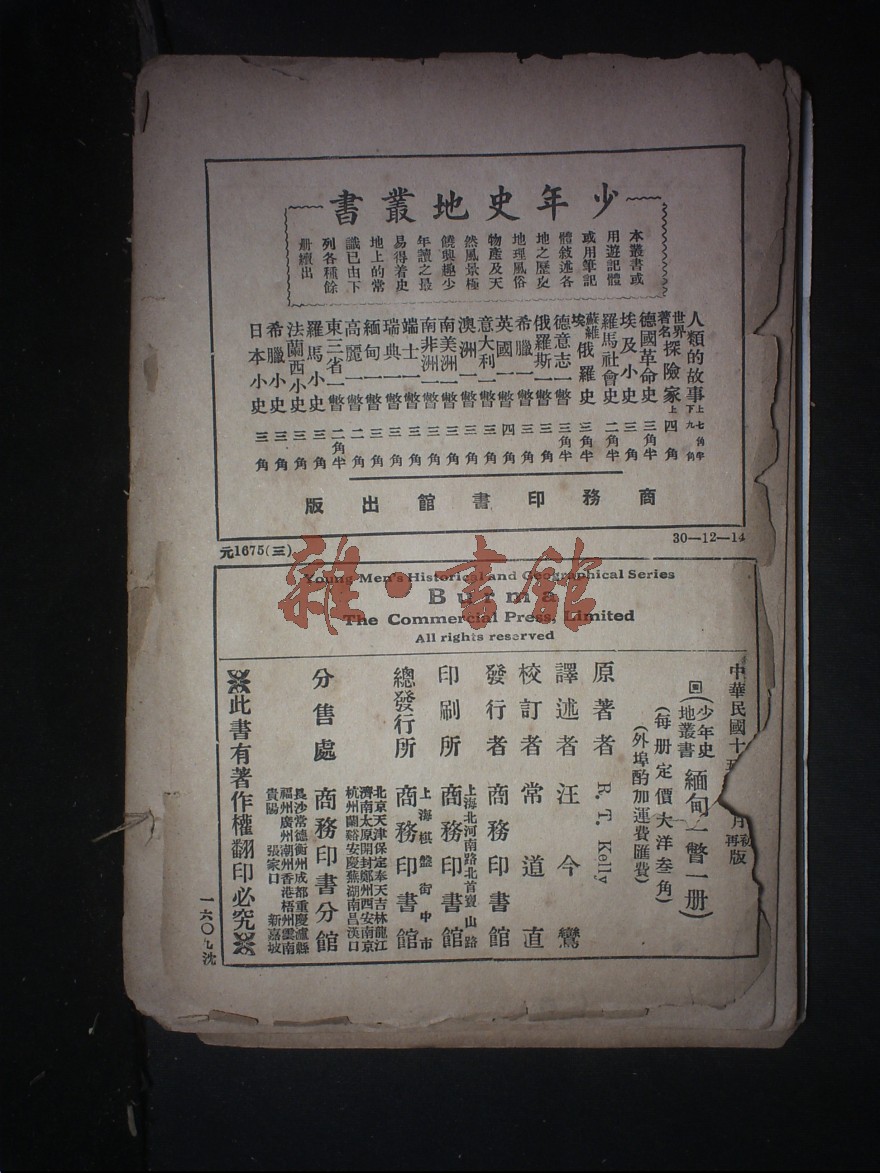 少年史地叢書
本叢書或
用遊記體
或用筆記
體敘述各
地之歷史
地理風俗
物產及天
然風景極
饒興趣少
年讀之最
易得着史
地上的常
識已由下
列各種餘
册續出
人類的故事 上 七角半 下 九角
世界著名探險家 上 四角
德國革命史 三角半
埃及小史 三角
羅馬社會史 二角半
蘇維埃俄羅史 三角半
德意志一瞥 三角半
俄羅斯一瞥 三角
希臘一瞥 三角
英國一瞥 四角
意大利一瞥 三角
澳洲一瞥 三角
南美洲一瞥 三角
南非洲一瞥 三角
瑞士一瞥 三角
瑞典一瞥 三角
緬甸一瞥 三角
高麗一瞥 二角
東三省一瞥 二角半
羅馬小史 三角
法蘭西小史 三角
希臘小史 三角
日本小史 三角
商務印書館出版
元1675(三)
30—12—14
雜·書館
Young Men's Historical and Geographical Series
Burma
The Commercial Press, Limited
All rights reserved
中華民國十五 月初 再版
回(少年史地叢書 緬甸一瞥一册)
(每册定價大洋叁角)
(外埠酌加運費匯費)
原著者 R. T. Kelly
譯述者 汪今鸞
校訂者 常道直
發行者 商務印書館
印刷所 上海北河南路北首寶山路 商務印書館
總發行所 上海棋盤街中市 商務印書館
分售處 商務印書分館
北京天津保定奉天吉林龍江
濟南太原開封鄭州西安南京
杭州蘭谿安慶蕪湖南昌漢口
長沙常德衡州成都重慶瀘縣
福州廣州潮州香港梧州雲南
貴陽 張家口 新嘉坡
此書有著作權翻印必究
一六〇九沈